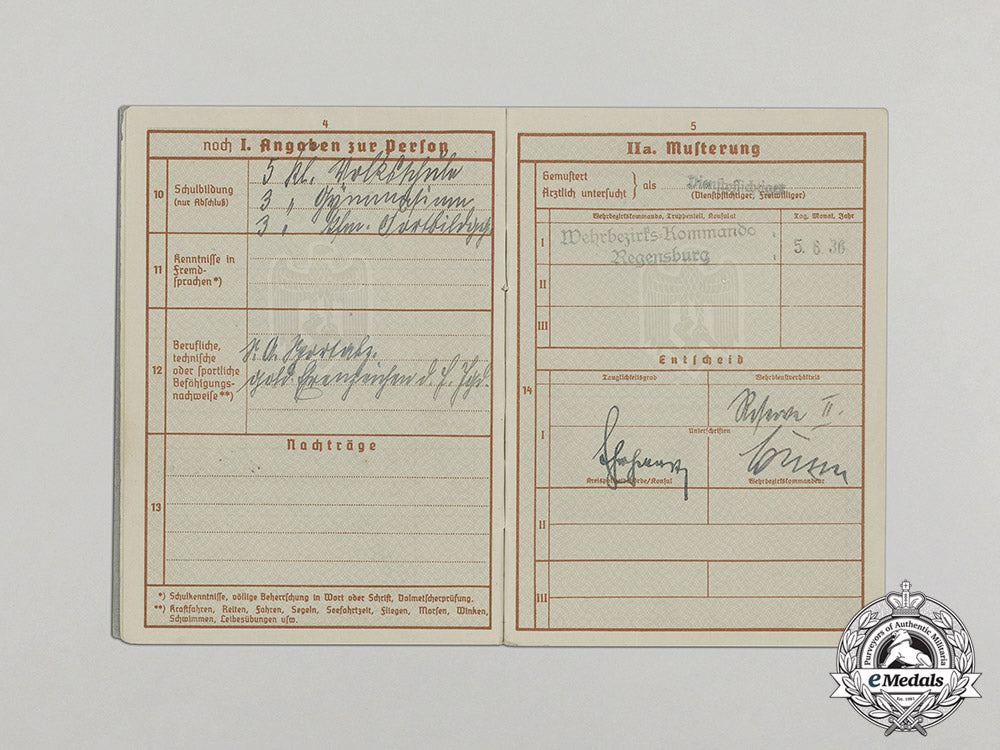 4
noch I. Angaben zur Person
10
Schulbildung
(nur Abschluß)
5 Kl. Volksschule
3 " Gymnasium
3 "
11
Kenntnisse in
Fremd-
sprachen*)
12
Berufliche,
technische
oder sportliche
Befähigungs-
nachweise**)
S. A. Sportabz.
gold. Erenzeichen d. H. Jgd.
Nachträge
13
*) Schulkenntnisse, völlige Beherrschung in Wort oder Schrift, Dolmetscherprüfung.
**) Kraftfahren, Reiten, Fahren, Segeln, Seefahrtzeit, Fliegen, Morsen, Winken,
Schwimmen, Leibesübungen usw.
5
IIa. Musterung
Gemustert
Ärztlich untersucht } als Dienstpflichtiger
(Dienstpflichtiger, Freiwilliger)
Wehrbezirkskommando, Truppenteil, Konsulat
Tag, Monat, Jahr
I
Wehrbezirks-Kommando
Regensburg
5. 6. 36
II
III
Entscheid
14
Tauglichkeitsgrad
Wehrdienstverhältnis
Reserve II.
I
Unterschriften
Kreispolizeibehörde/Konsul
Wehrbezirkskommandeur
II
III
Purveyors of Authentic Militaria
eMedals
Est. 1985